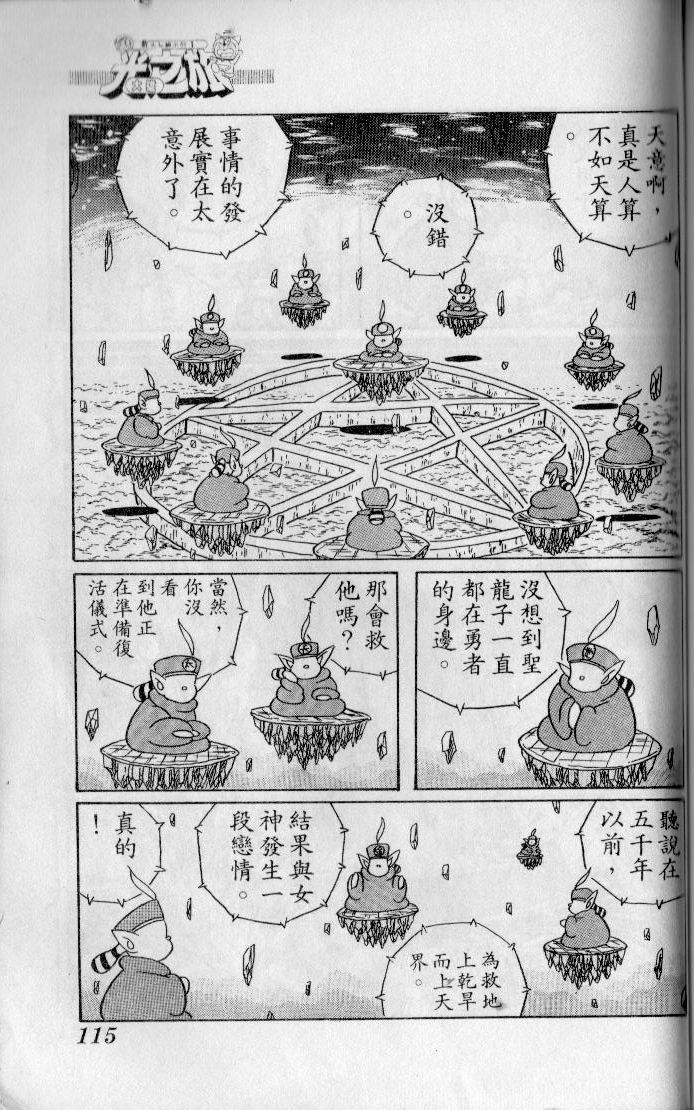 光之旅
天意啊，
真是人算
不如天算
。
沒錯
。
事情的發
展實在太
意外了。
沒想到聖
龍子一直
都在勇者
的身邊。
那會救
他嗎？
當然，
你沒
看
到他正
在準備復
活儀式。
聽說在
五千年
以前，
為救地
上乾旱
而上天
界。
結果與女
神發生一
段戀情。
真的
！
115